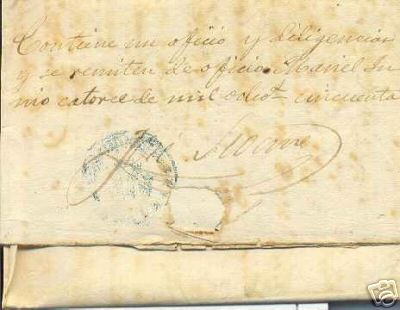 Contiene un oficio y diligencias
y se remiten de oficio. Mariel Ju
nio catorce de mil ochot cincuenta
ebY